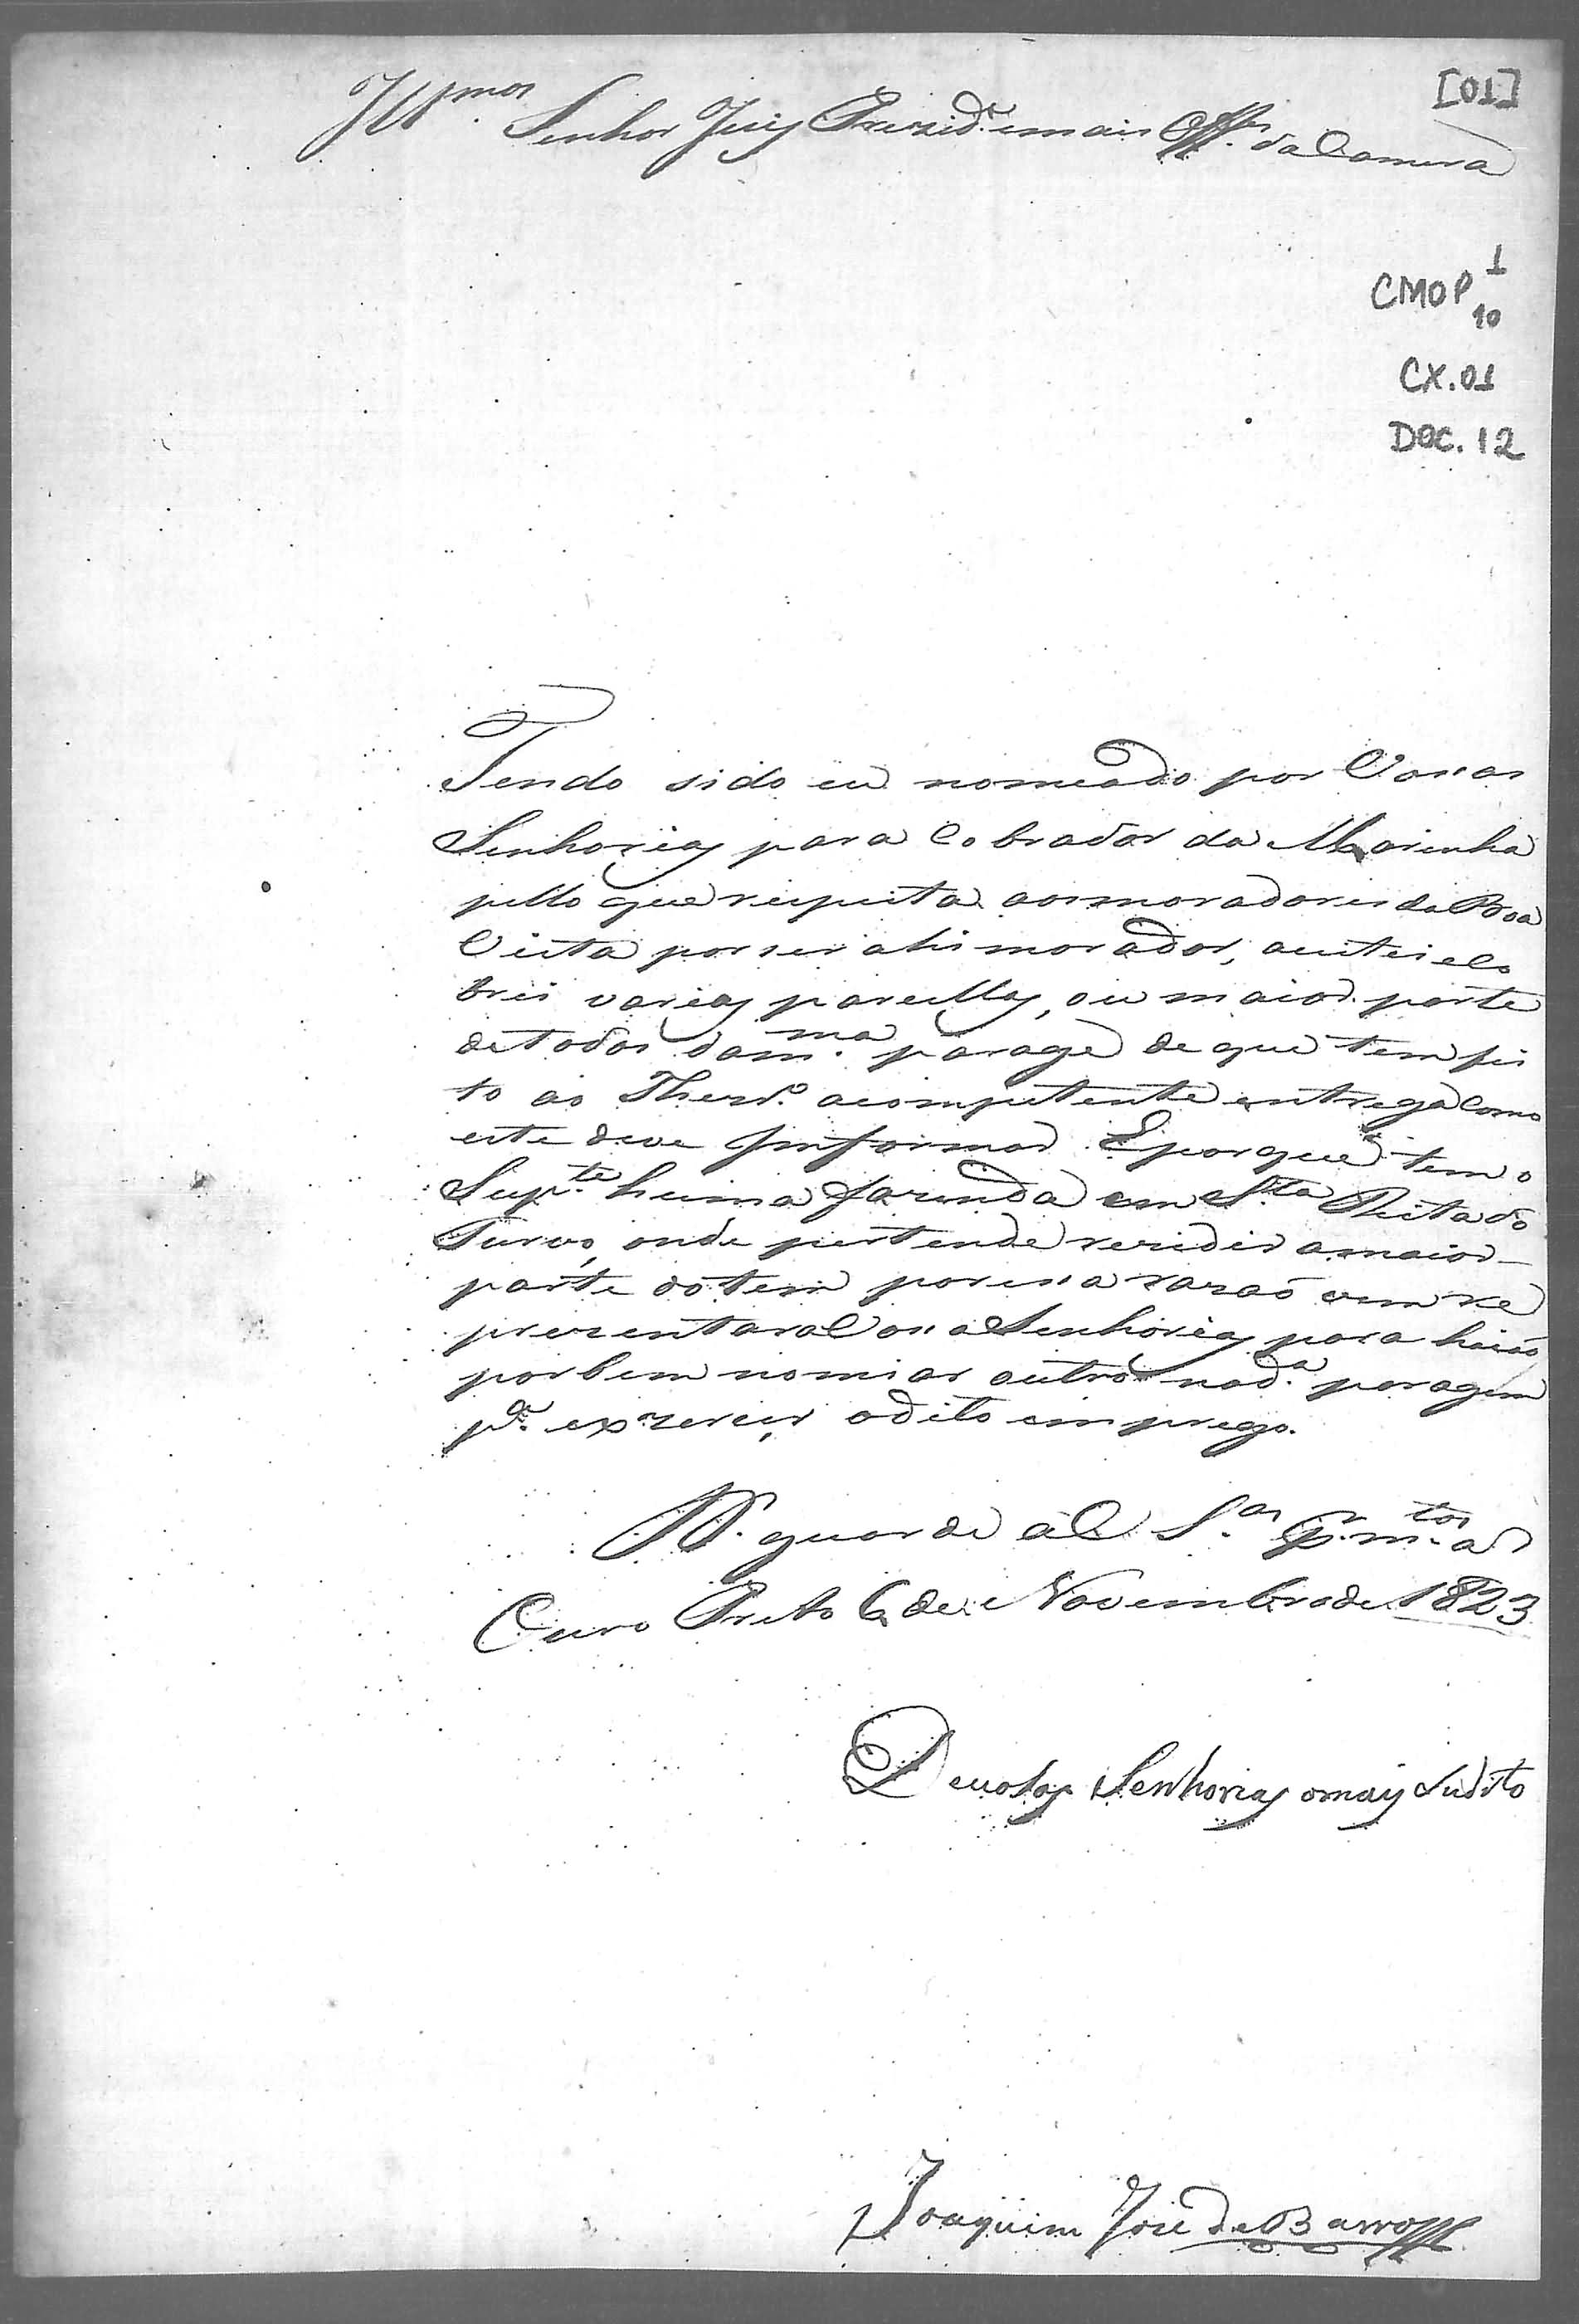 [01]
Jllmos Senhor Juiz Prezide. emais Offes. da Camera
CMOP 1
10
CX.01
DOC. 12
Tendo sido eu nomeado por Vossas
Senhorias para Cobrador da Marinha
pello que respeita aos moradores da Boa
Vista por ser ahi morador, aceitei eco
brei varias parcellas, ou maior parte
de todos dam.ma parage de que tem fei
to ao Thezro. acompetente entrega como
este deve Jnformar. Eporque tem o
Supte. huma fazenda em Sta. Rita do
Turvo, onde pertende rezidir amaior
parte do tem por essa razaõ vem re
prezentar a Vossa Senhorias para haião
por bem nomiar outro nad.a paragem
pa. exzercer odito emprego.
Ds. guarde a V Sas. ms. as
Ouro Preto 6 de Novembro de 1823
Devosas Senhorias omais Sudito
Joaquim José de Barros